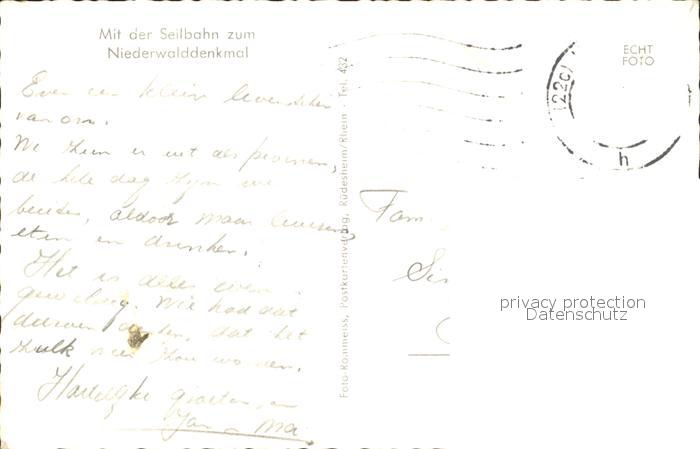 Mit der Seilbahn zum
Niederwalddenkmal
ECHT
FOTO
(22c)
h
Even een klein levensteken
van ons.
We zien er uit als
de hele dag zijn we
buiten, aldoor maar
eten en drinken.
Het is alles even
geweldig. Wie had dat
durven denken, dat het
zulk weer zou worden.
Hartelijke groeten,
Jan
Foto-Rommeiss, Postkartenverlag, Rüdesheim/Rhein · Tel. 432
Fam.
privacy protection
Datenschutz